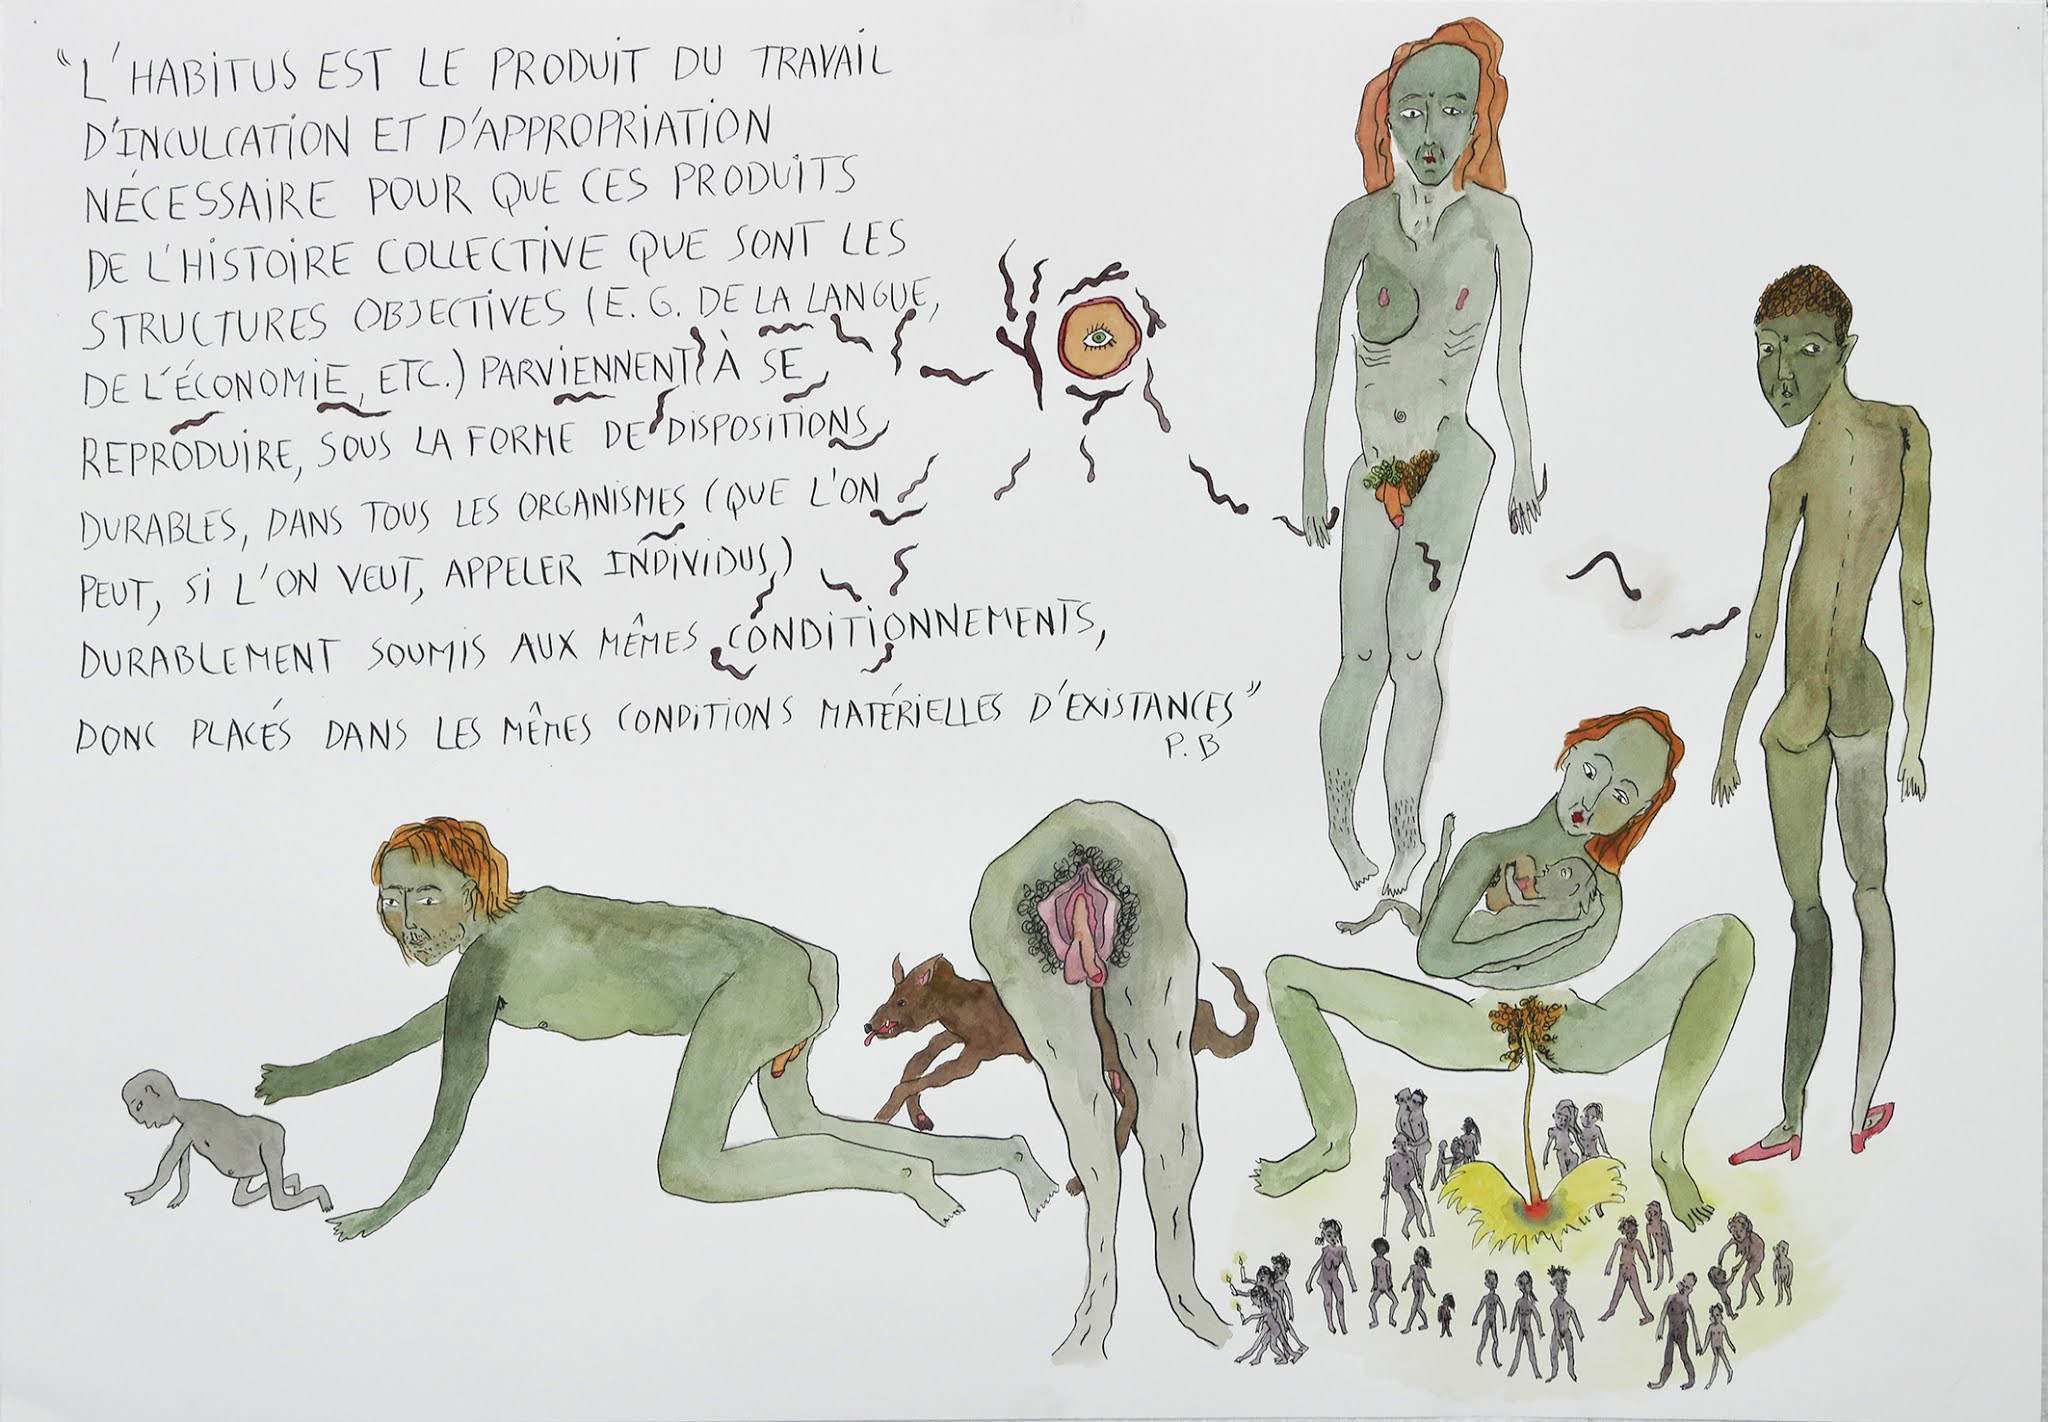 "L'HABITUS EST LE PRODUIT DU TRAVAIL
D'INCULCATION ET D'APPROPRIATION
NÉCESSAIRE POUR QUE CES PRODUITS
DE L'HISTOIRE COLLECTIVE QUE SONT LES
STRUCTURES OBJECTIVES (E. G. DE LA LANGUE,
DE L'ÉCONOMIE, ETC.) PARVIENNENT À SE
REPRODUIRE, SOUS LA FORME DE DISPOSITIONS
DURABLES, DANS TOUS LES ORGANISMES (QUE L'ON
PEUT, SI L'ON VEUT, APPELER INDIVIDUS)
DURABLEMENT SOUMIS AUX MÊMES CONDITIONNEMENTS,
DONC PLACÉS DANS LES MÊMES CONDITIONS MATÉRIELLES D'EXISTANCES"
P. B